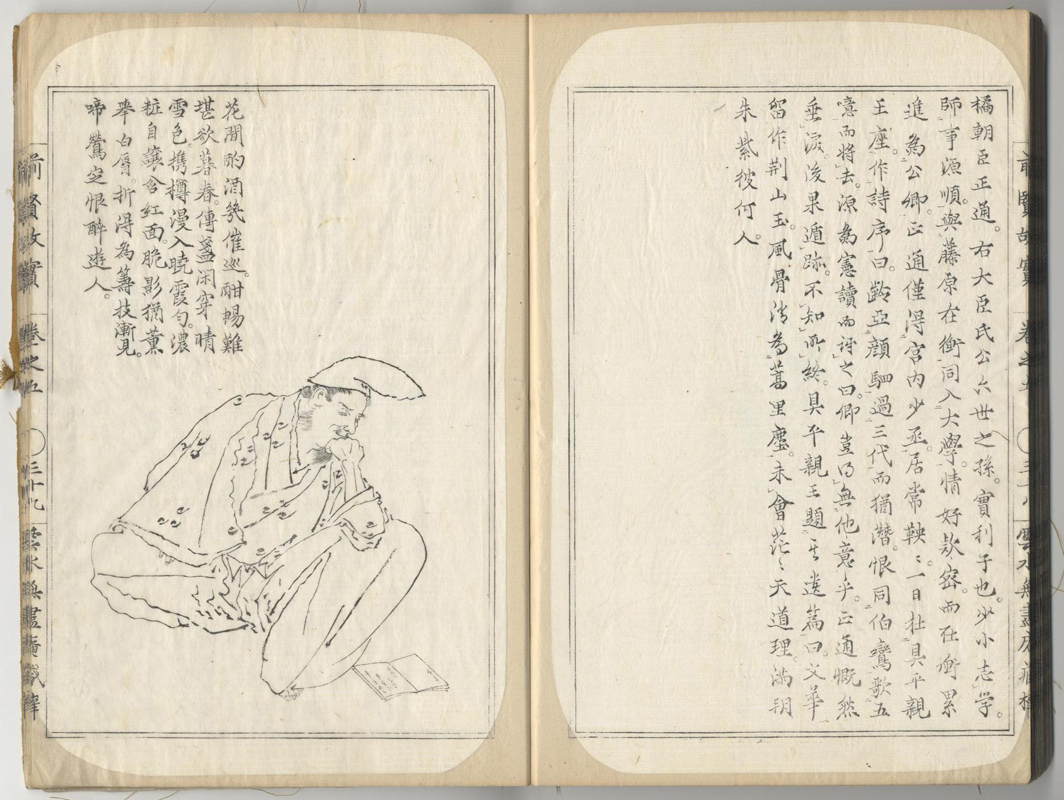 橘朝臣正通。右大臣氏公六世之孫。實利子也。少小志学。
師事源順。與藤原在衡同入大學。情好欵密。而在衡累
進為公卿。正通僅得宮内少丞。居常鞅〻。一日在具平親
王座。作詩序曰。齡亞顔駟過三代而猶潛。恨同伯鸞歌五
噫而将去。源為憲讀而訝之曰。卿豈得無他意乎。正通慨然
垂涙。後果遁跡。不知所終。具平親王題其遺篇曰。文華
留作荊山玉。風骨消為蒿里塵。未會茫〻天道理。満朝
朱紫彼何人。
前賢故實
卷之五
花間酌酒幾催巡。酣暢難
堪欲暮春。傳盞闲穿晴
雪色。携樽漫入曉霞匀。濃
粧自讓含紅面。脆影猶薫
舉白唇。折得為籌技漸見。
啼鶯空恨醉遊人。
前賢故實
卷之五
三十九
雲水無盡庵藏梓